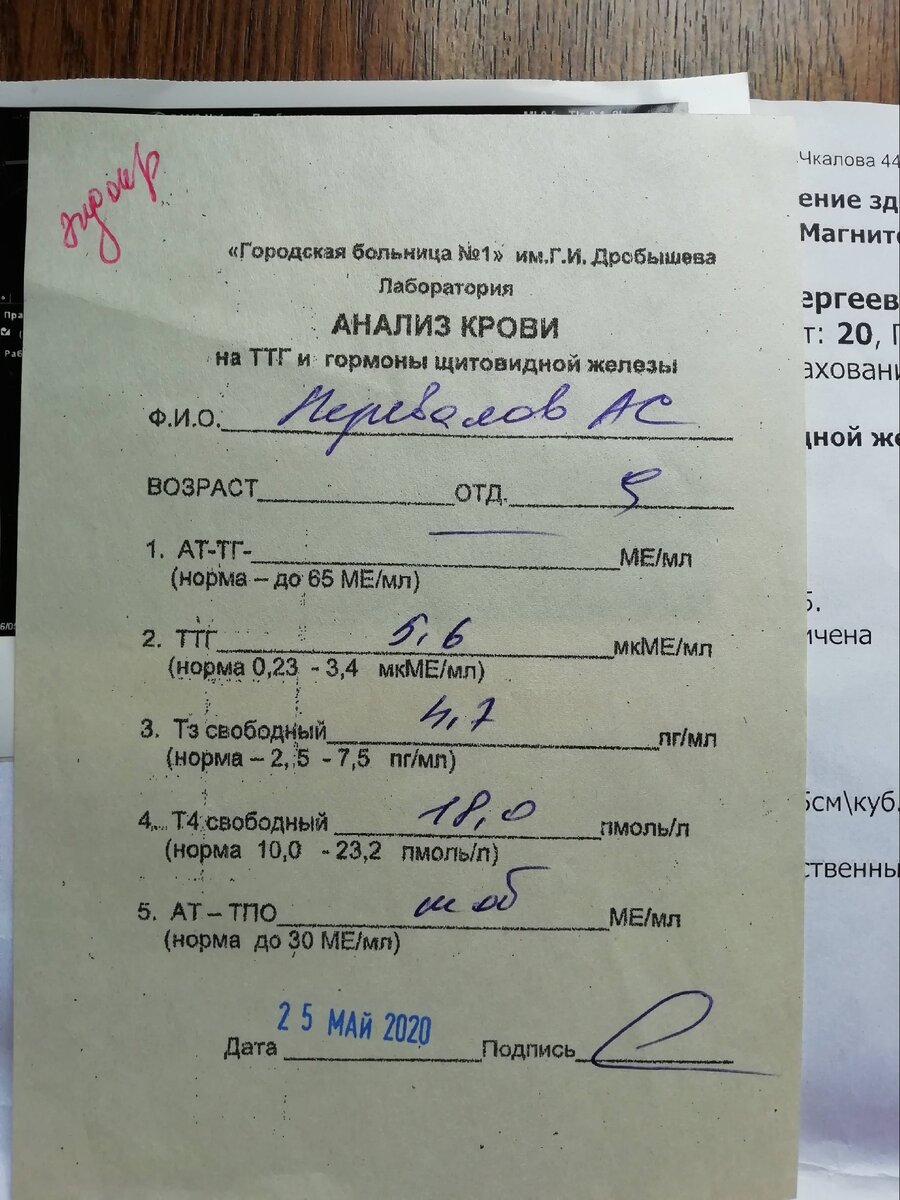 «Городская больница №1» им.Г.И. Дробышева
Лаборатория
АНАЛИЗ КРОВИ
на ТТГ и гормоны щитовидной железы
Ф.И.О. Перевалов АС
ВОЗРАСТ ОТД. 5
1. АТ-ТГ- МЕ/мл
(норма – до 65 МЕ/мл)
2. ТТГ 5,6 мкМЕ/мл
(норма 0,23 - 3,4 мкМЕ/мл)
3. Тз свободный 4,7 пг/мл
(норма – 2, 5 - 7,5 пг/мл)
4. Т4 свободный 18,0 пмоль/л
(норма 10,0 - 23,2 пмоль/л)
5. АТ – ТПО МЕ/мл
(норма до 30 МЕ/мл)
25 МАЙ 2020
Дата Подпись
Чкалова 44
ение зд
Магнито
ергеев
т: 20,
аховани
дной же
ичена
см\куб.
ственны